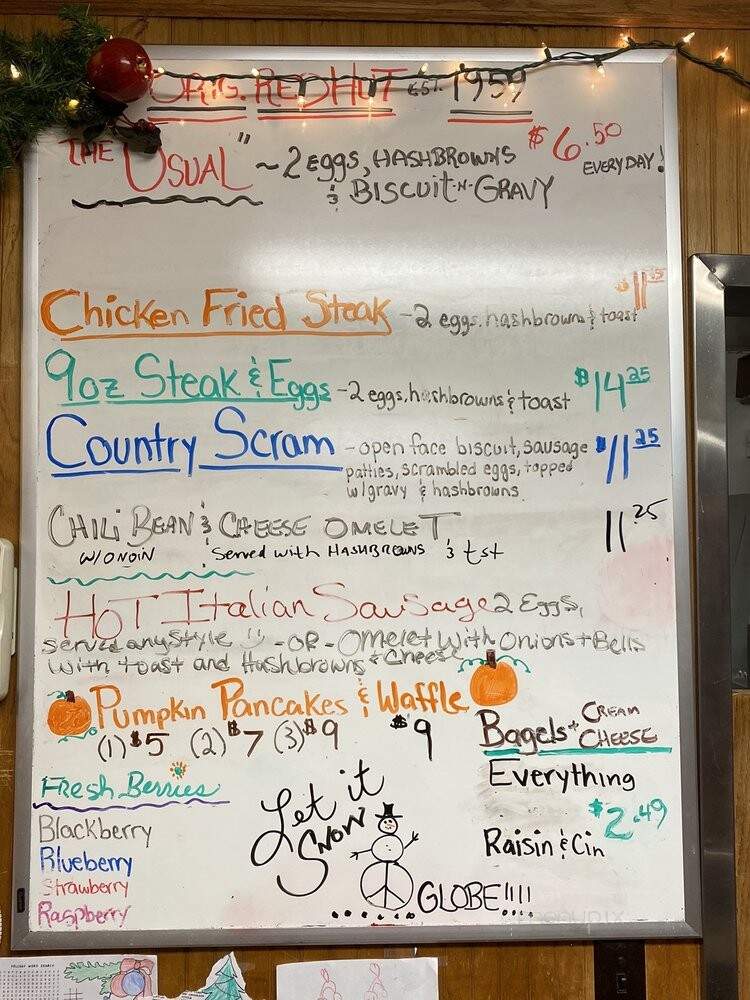 ORIG. RED HUT EST. 1959
THE "USUAL" ~ 2 EGGS, HASHBROWNS $6.50
& BISCUIT-N-GRAVY EVERYDAY!
Chicken Fried Steak - 2 eggs, hashbrowns & toast
9oz Steak & Eggs - 2 eggs, hashbrowns & toast $14.25
Country Scram - open face biscuit, sausage $11.25
patties, scrambled eggs, topped
w/gravy & hashbrowns
CHILI BEAN & CHEESE OMELET 11.25
W/ONOIN Served with HASHBROWNS & tst
HOT Italian Sausage 2 Eggs,
served any style - OR - Omelet With Onions + Bells
With toast and Hashbrowns + Cheese
Pumpkin Pancakes & Waffle
(1) $5 (2) $7 (3) $9 $9
Bagels + CREAM
CHEESE
Everything
$2.49
Raisin & Cin
Fresh Berries
Blackberry
Blueberry
Strawberry
Raspberry
Let it
Snow
GLOBE!!!!